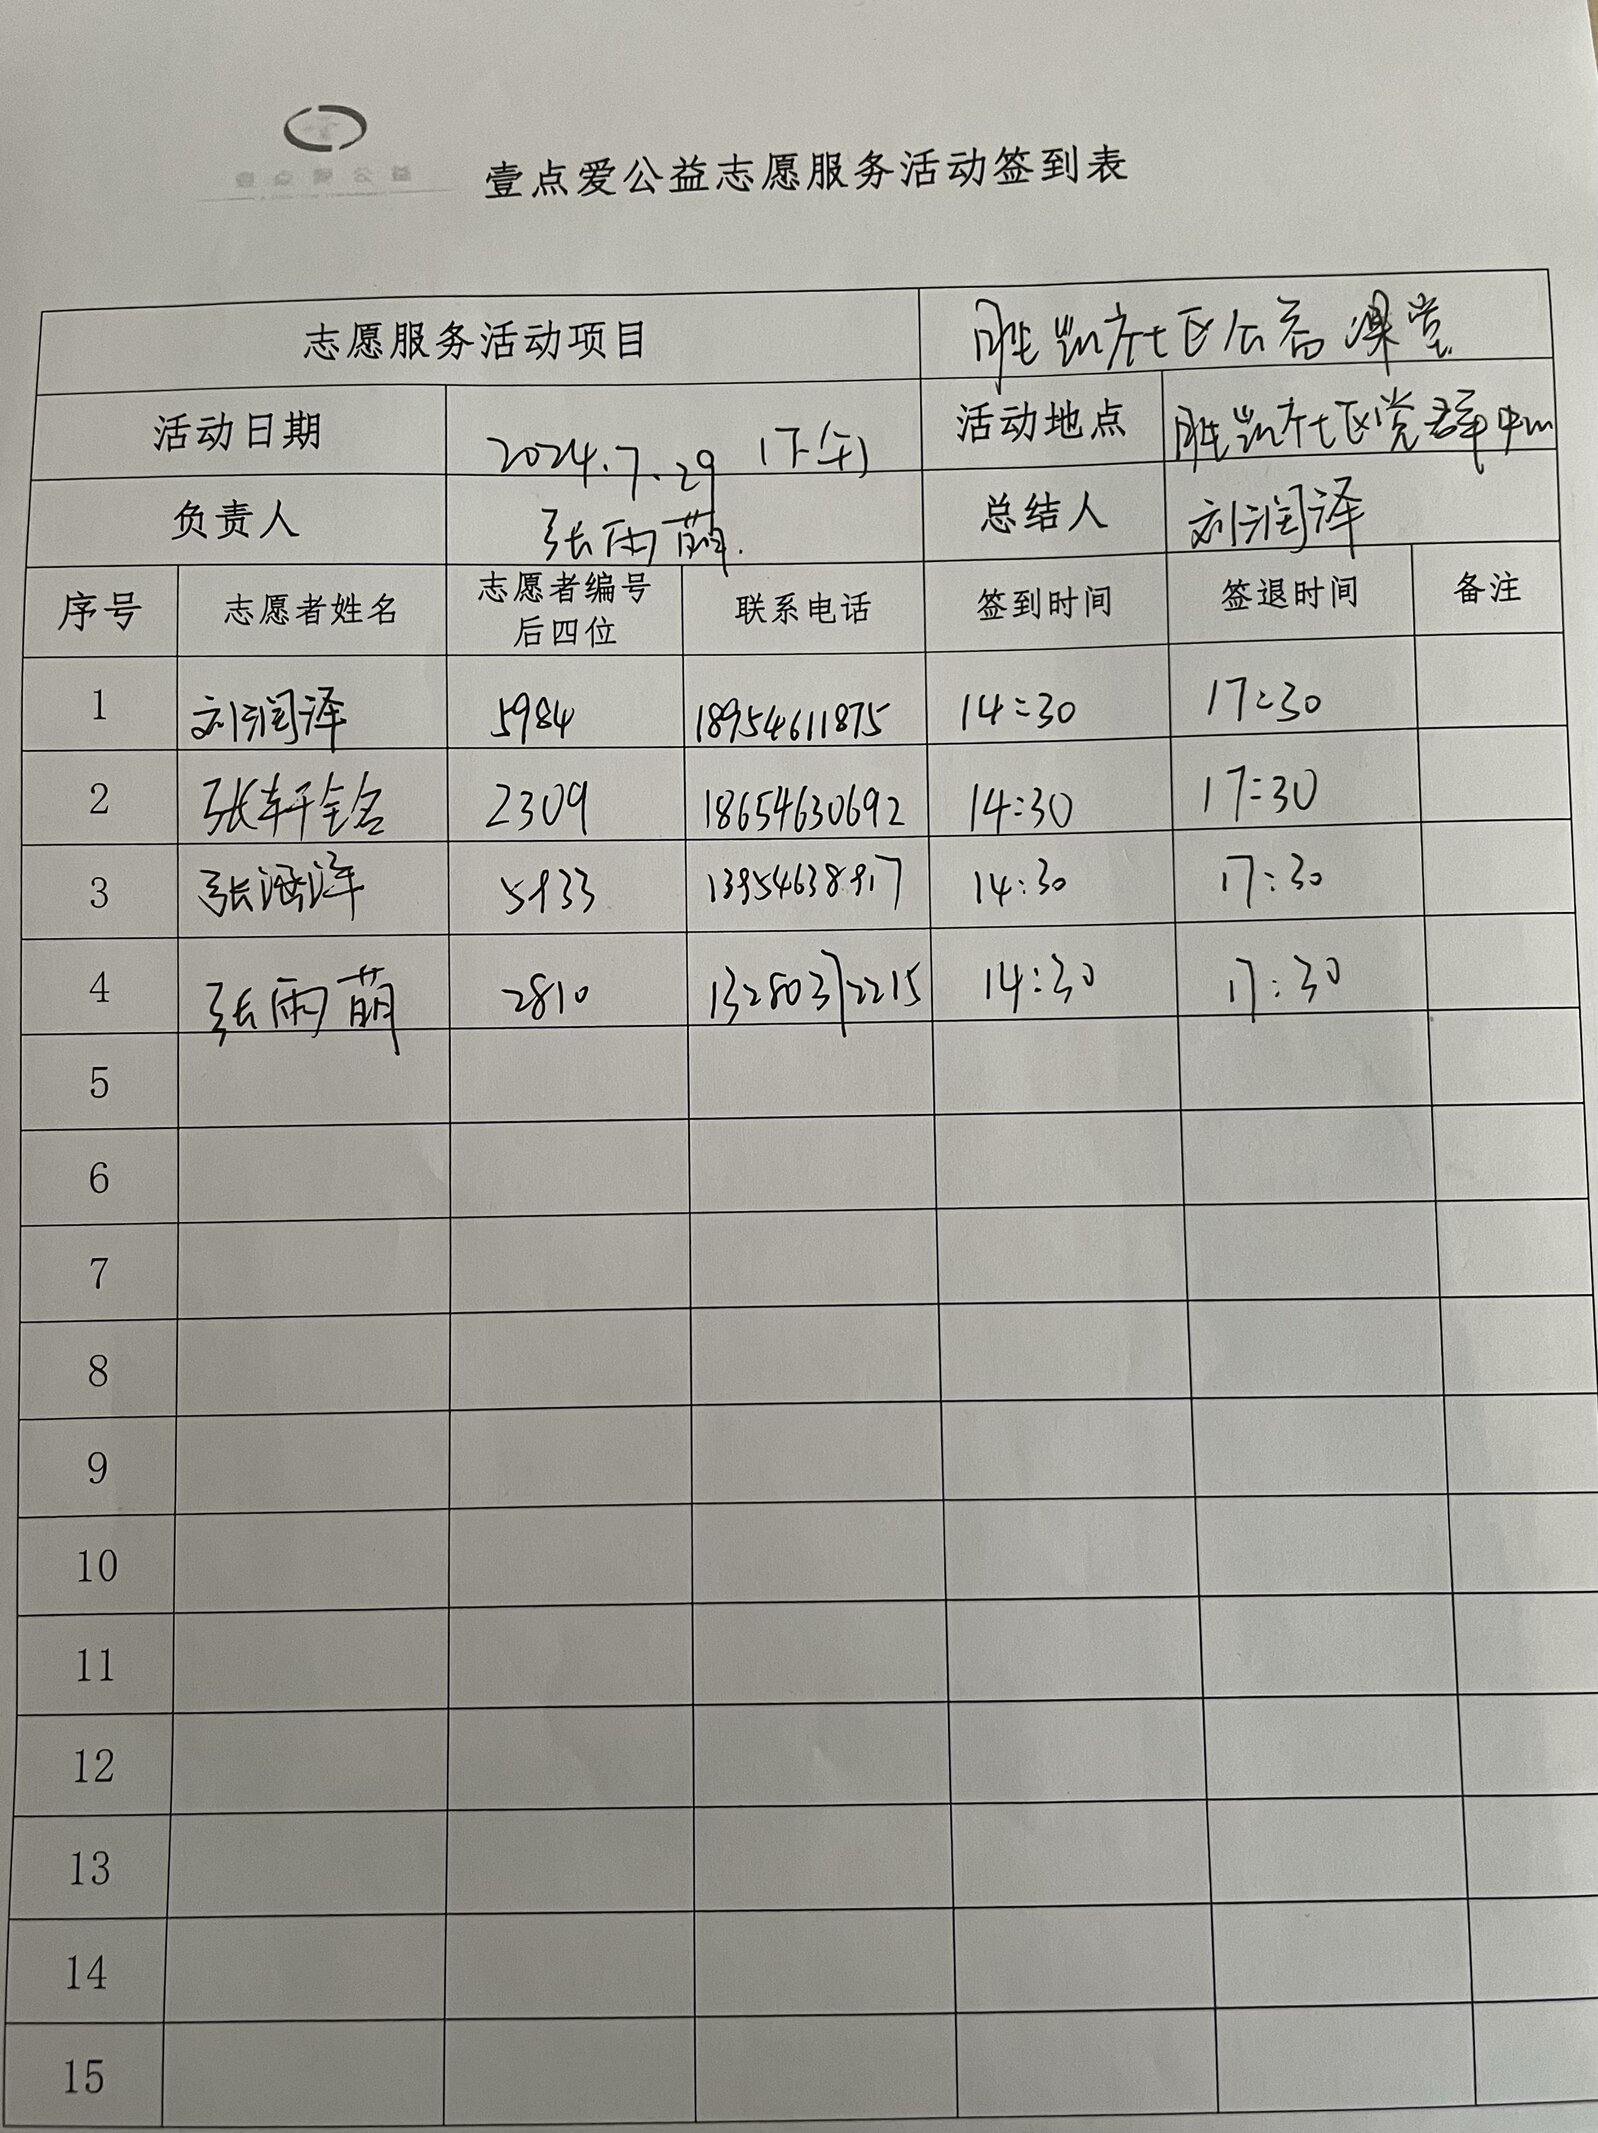 壹点爱公益志愿服务活动签到表
志愿服务活动项目 胜凯社区公益课堂
活动日期 2024.7.29 (下午) 活动地点 胜凯社区党群中心
负责人 张雨萌. 总结人 刘润泽
序号 志愿者姓名 志愿者编号 联系电话 签到时间 签退时间 备注
后四位
1 刘润泽 5984 18954611875 14:30 17:30
2 张轩铭 2309 18654630692 14:30 17:30
3 张涵泽 5933 13954638917 14:30 17:30
4 张雨萌 2810 13280372215 14:30 17:30
5
6
7
8
9
10
11
12
13
14
15